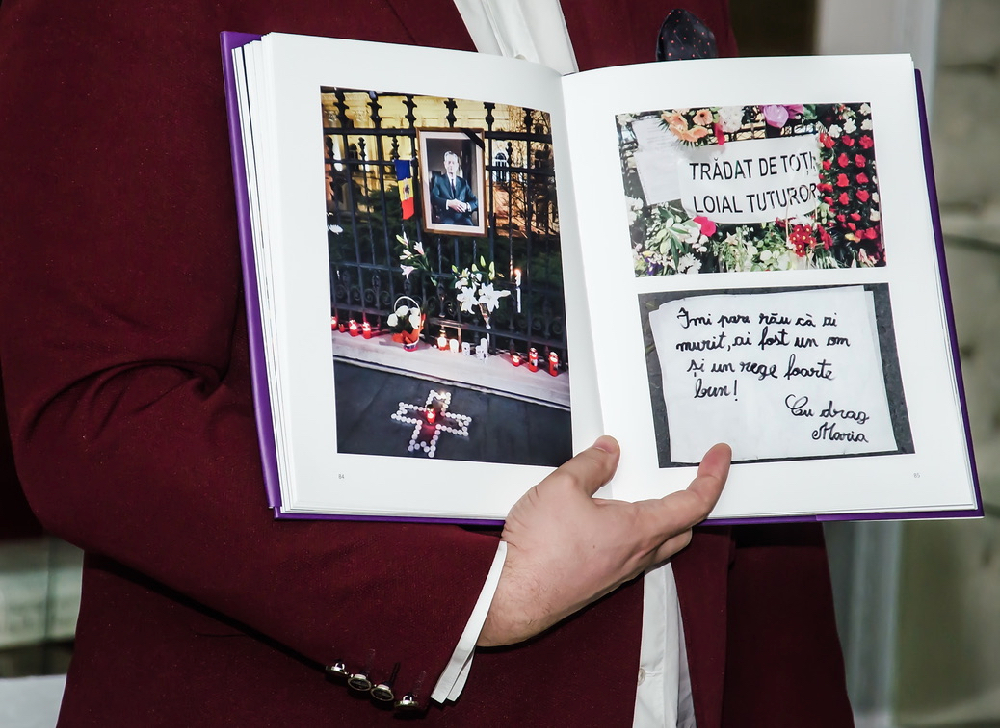 TRĂDAT DE TOȚI
LOIAL TUTUROR
Îmi pare rău că ai
murit, ai fost un om
și un rege foarte
bun!
Cu drag
Maria
84
85